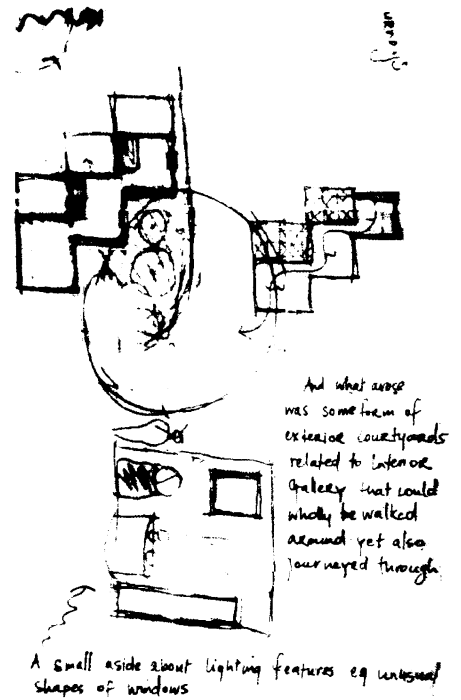 And what arose
was some form of
exterior courtyards
related to Interior
Gallery that could
wholly be walked
around yet also
journeyed through
A small aside about lighting features eg unusual
shapes of windows